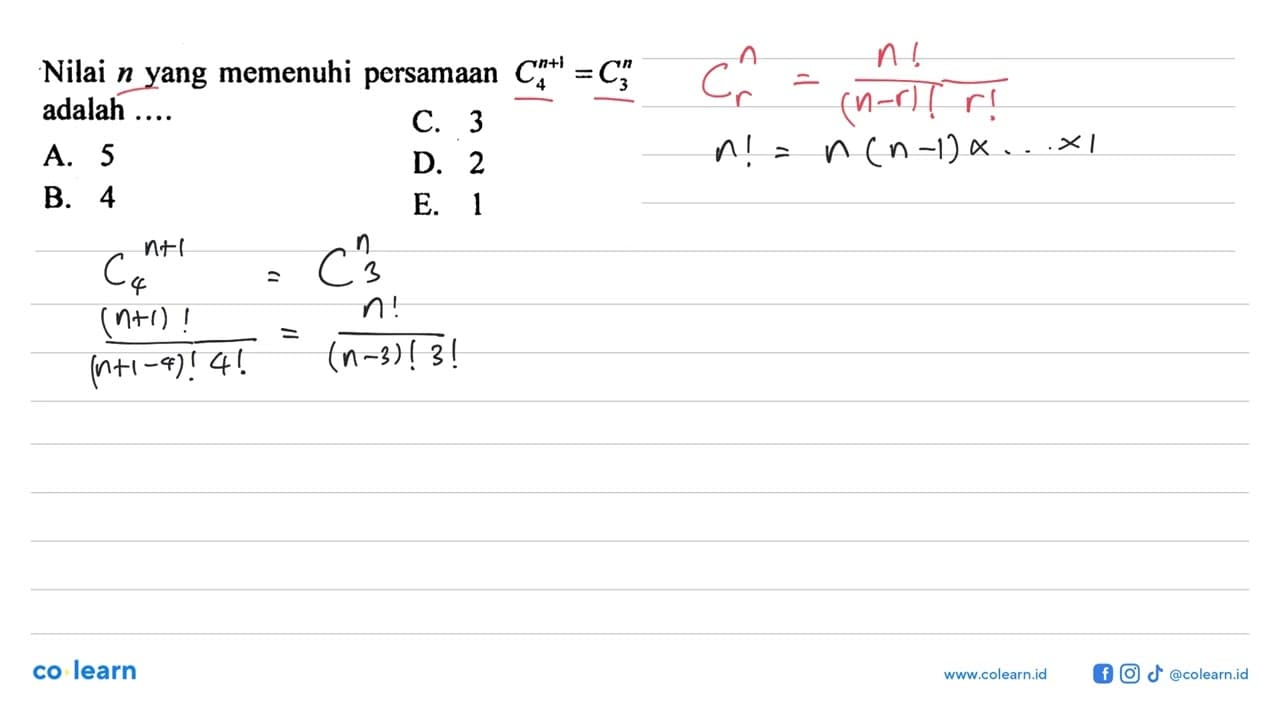 Nilai n yang memenuhi persamaan C₄ⁿ⁺¹ = C₃ⁿ
adalah ....
A. 5
B. 4
C. 3
D. 2
E. 1
Cᵣⁿ = n! / (n-r)! r!
n! = n (n-1) × ... × 1
C₄ⁿ⁺¹ = C₃ⁿ
(n+1)! / (n+1-4)! 4! = n! / (n-3)! 3!
co learn
www.colearn.id
@colearn.id